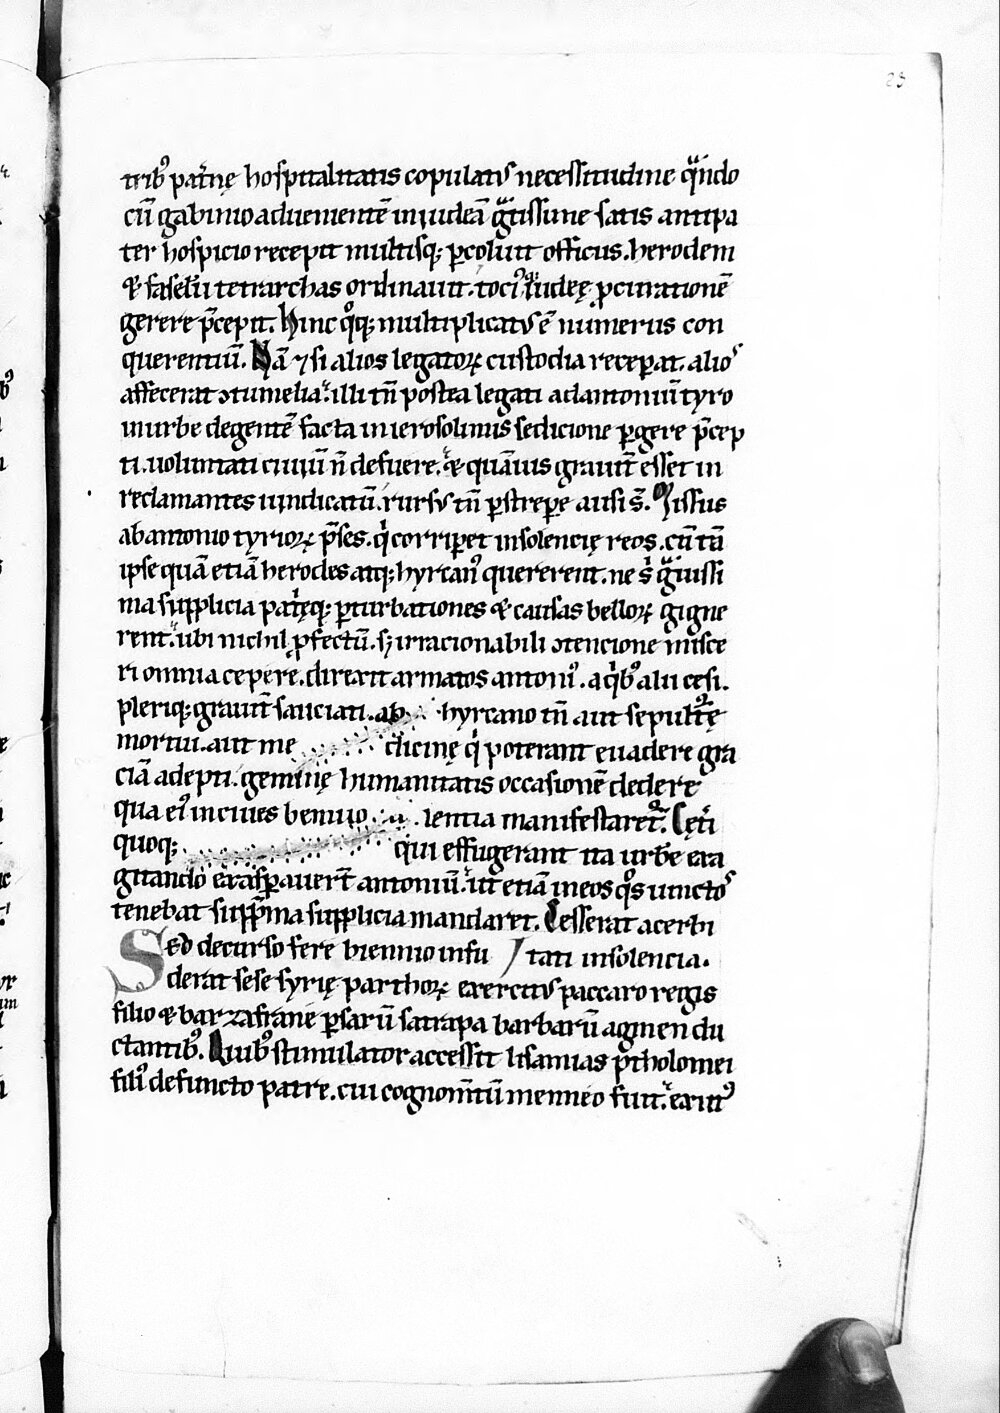 23
trib᷒ pat̄nę hospitalitatis copulatꝰ necessitudine qͣndo
cū gabinio aduenientē iniudeā gͣtissime satis antipa
ter hospicio recepit multisq; ꝑcoluit officiis. herodem
& faselū tetrarchas ordinauit. tociꝰ iudeę ꝓcurationē
gerere p̄cepit. hinc qͦq; multiplicatꝰ ē numerus con
querentiū. Nā ⁊ si alios legatoꝝ custodia recepat. alioˢ
affecerat ↄtumelia. illi tn̄ postea legati adantoniū tyro
inurbe degentē facta inierosolimis sedicione ꝑgere p̄cep
ti. uoluntati ciuiū n̄ defuere. & quāuis grauit̄ esset in
reclamantes uindicatū. rursꝰ tn̄ ꝑstrepe ausi s̄. Missus
abantonio tyrioꝝ p̄ses. qͥ corriꝑet insolencię reos. cū tā
ipse quā etiā herodes atq; hyrcanꝰ quererent. ne sͥ gͣuissi
ma supplicia pat̄ęq; ꝑturbationes & causas belloꝝ gigne
rent. ubi nichil ꝓfectū. sꝫ irracionabili ↄtencione misce
ri omnia cepere. direxit armatos antoniꝰ. aqͥbꝰ alii cesi.
pleriq; grauit̄ sauciati. ab hyrcano tn̄ aut sepultᷣę
mortui. aut me dicinę qͥ poterant euadere gra
ciā adepti. geminę humanitatis occasionē dedere
qua eiꝰ inciues beniuo lentia manifestaretᷣ. Cęt̄i
quoq; qui effugerant ita urbē exa
gitando exasꝑauer̄t antoniū. ut etiā ineos qͦs uinctoˢ
tenebat supp̄ma supplicia mandaret. Cesserat acerbi
Sed decurso fere biennio infu / tati insolencia.
derat sese syrię parthoꝝ exercitꝰ paccaro regis
filio & barzafrane ꝑsarū satrapa barbarū agmen du
ctantibꝰ. Quibꝰ stimulator accessit lisamias ptholomei
filiꝰ defuncto patre. cui cognom̄tū menneo fuit. exitꝰ